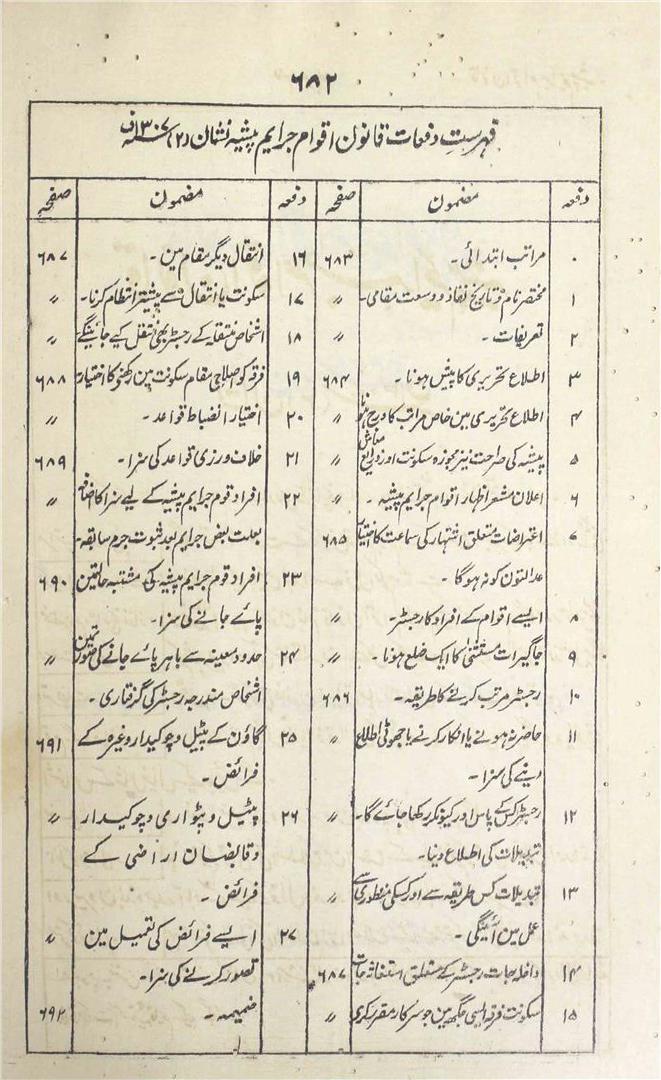 ۶۸۲
فہرست دفعات قانون اقوام جرایم پیشہ نشان (۲) ۱۳۰۷ف
دفعہ مضمون صفحہ
۰ مراتب ابتدائی۔ ۶۸۳
۱ مختصر نام و تاریخ نفاذ و وسعت مقامی۔ 〃
۲ تعریفات۔ 〃
۳ اطلاع تحریری کا پیش ہونا۔ ۶۸۴
۴ اطلاع تحریری مین خاص مراتب کا درج ہونا 〃
۵ پیشہ کی صراحت نیز مجوزہ سکونت اور ذرایع معاش 〃
۶ اعلان مشعر اظہار اقوام جرایم پیشہ۔ 〃
۷ اعتراضات متعلق اشتہار کی سماعت کا اختیار ۶۸۵
عدالتون کو نہ ہوگا۔
۸ ایسے اقوام کے افراد کا رجسٹر۔ 〃
۹ جاگیرات مستثنیٰ کا ایک ضلع ہونا۔ 〃
۱۰ رجسٹر مرتب کرنے کا طریقہ۔ ۶۸۶
۱۱ حاضر نہ ہونے یا انکار کرنے یا جھوٹی اطلاع 〃
دینے کی سزا۔
۱۲ رجسٹر کس کے پاس اور کیونکر رکھا جائے گا۔ 〃
تبدیلات کی اطلاع دینا۔
۱۳ تبدیلات کس طریقہ سے اور کسکی منظوری سے 〃
عمل مین آئینگی۔
۱۴ داخلہ جات رجسٹر کے متعلق استغاثہ جات ۶۸۷
۱۵ سکونت فرقہ ایسی جگھ مین جو سرکار مقرر کری 〃
دفعہ مضمون صفحہ
۱۶ انتقال دیگر مقام مین۔ ۶۸۷
۱۷ سکونت یا انتقال سے پیشتر انتظام کرنا۔ 〃
۱۸ اشخاص منتقلہ کے رجسٹر بھی منتقل کیے جائینگے 〃
۱۹ فرقہ کو اصلاحی مقام سکونت مین رکھنی کا اختیار ۶۸۸
۲۰ اختیار انضباط قواعد۔ 〃
۲۱ خلاف ورزی قواعد کی سزا۔ ۶۸۹
۲۲ افراد قوم جرایم پیشہ کے لیے سزا کا اضافہ 〃
بعلت بعض جرایم بعد ثبوت جرم سابقہ۔
۲۳ افراد قوم جرایم پیشہ کی مشتبہ حالتین ۶۹۰
پائے جانے کی سزا۔
۲۴ حدود معینہ سے باہر پائے جانے کی صورتمین 〃
اشخاص مندرجہ رجسٹر کی گرفتاری۔
۲۵ گاؤن کے پٹیل و چوکیدار وغیرہ کے ۶۹۱
فرائض۔
۲۶ پٹیل و پٹواری و چوکیدار 〃
و قابضان اراضی کے
فرائض۔
۲۷ ایسے فرائض کی تعمیل مین 〃
قصور کرنے کی سزا۔
ضمیمہ۔ ۶۹۲